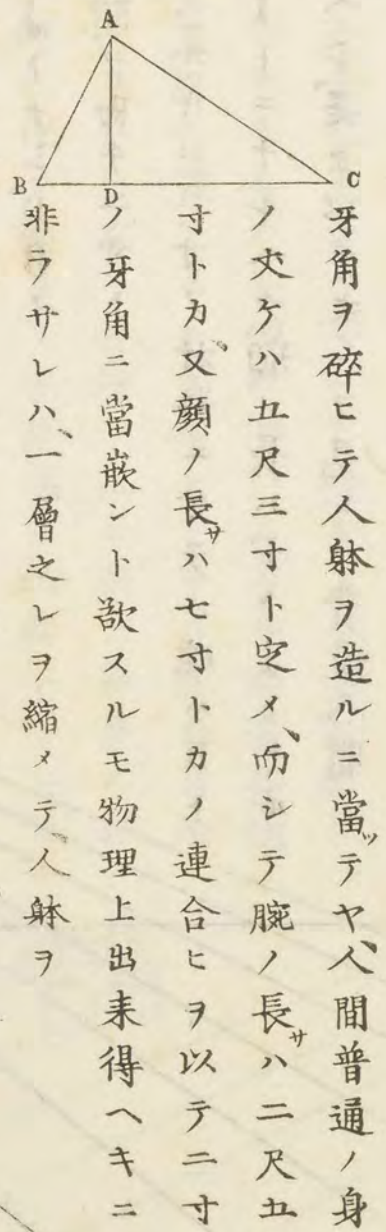 牙角ヲ碎ヒテ人躰ヲ造ルニ當ッテヤ、人間普通ノ身
ノ丈ケハ五尺三寸ト定メ、而シテ腕ノ長サハ二尺五
寸トカ、又顔ノ長サハ七寸トカノ連合ヒヲ以テ二寸
ノ牙角ニ當嵌ント欲スルモ物理上出来得ヘキニ
非ラサレハ、一層之レヲ縮メテ、人躰ヲ
A
B
D
C